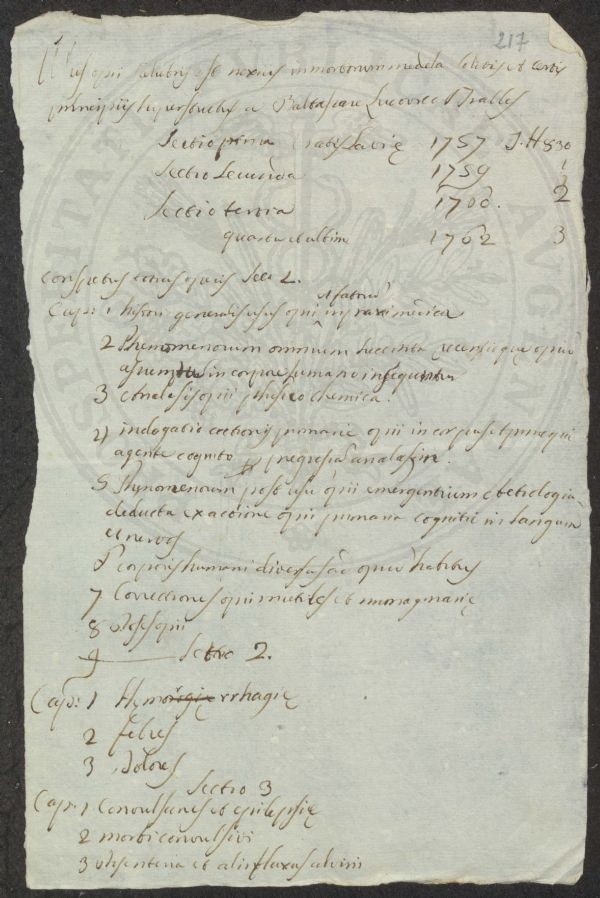 217
Usus opii salubris et noxius in morborum medela solidis et certis
principiis superstructus a Baltasare Ludovico Tralles
Sectio prima Vratislaviæ 1757 J. H 830
1
Sectio Secunda 1759
Sectio tertia 1760. 2
quarta et ultima 1762 3
Conspectus totius operis Sect
Cap: 1 histori generalis usus opii in praxi medica
2 Phænomenorum omnium succincta recensio quæ opium
assumptum in corpore humano insequuntur
3 opii physico chemica.
4 indagatio actionis primariæ opii in corpus
agente cognito analysin.
5 Phænomenorum post usum opii emergentium ætiologia
deducta ex actione opii primaria cognitâ in sanguinem
et nervos
6 corporis humani diversas ad opium habitus
7 Correctiones opii inutiles et imaginariæ
8 Dosis opii
9 Sectio 2.
Cap: 1 Hæmorrhagiæ
2 febres
3 dolores
Sectio 3
Cap: 1 Convulsiones et epilepsiæ
2 morbi convulsivi
3 dysenteria et alii fluxus alvini